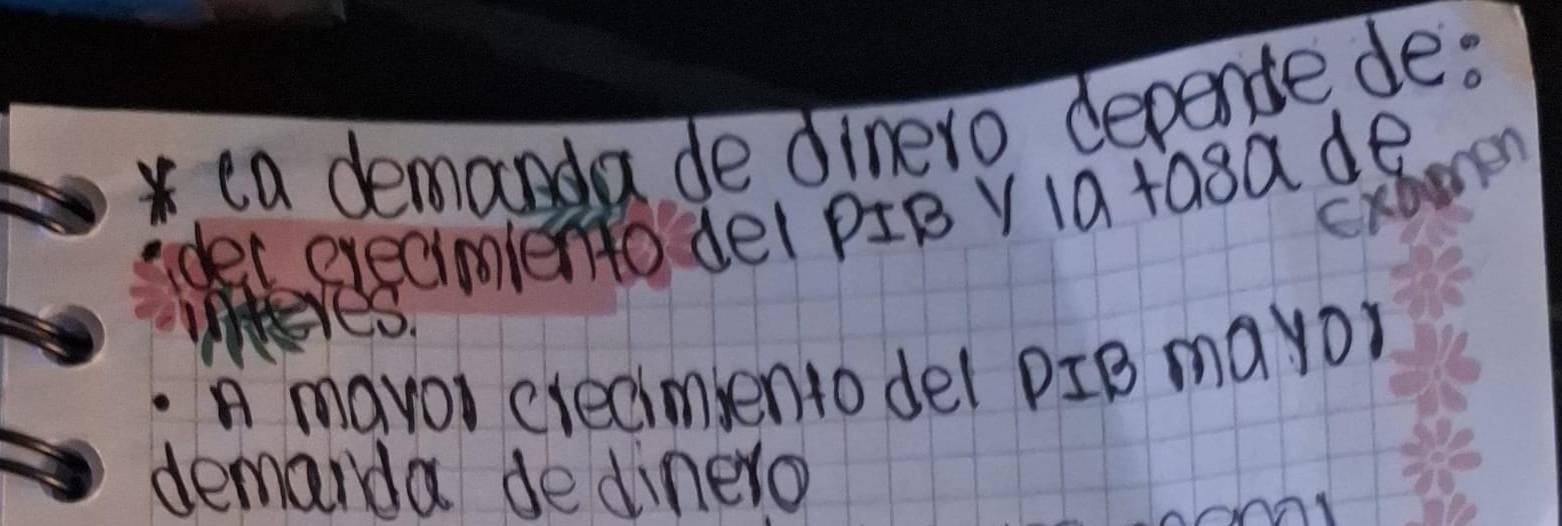 * la demanda de dinero depende de:
• del crecimiento del PIB y la tasa de
examen
interes.
• A mayor crecimiento del PIB mayor
demanda de dinero